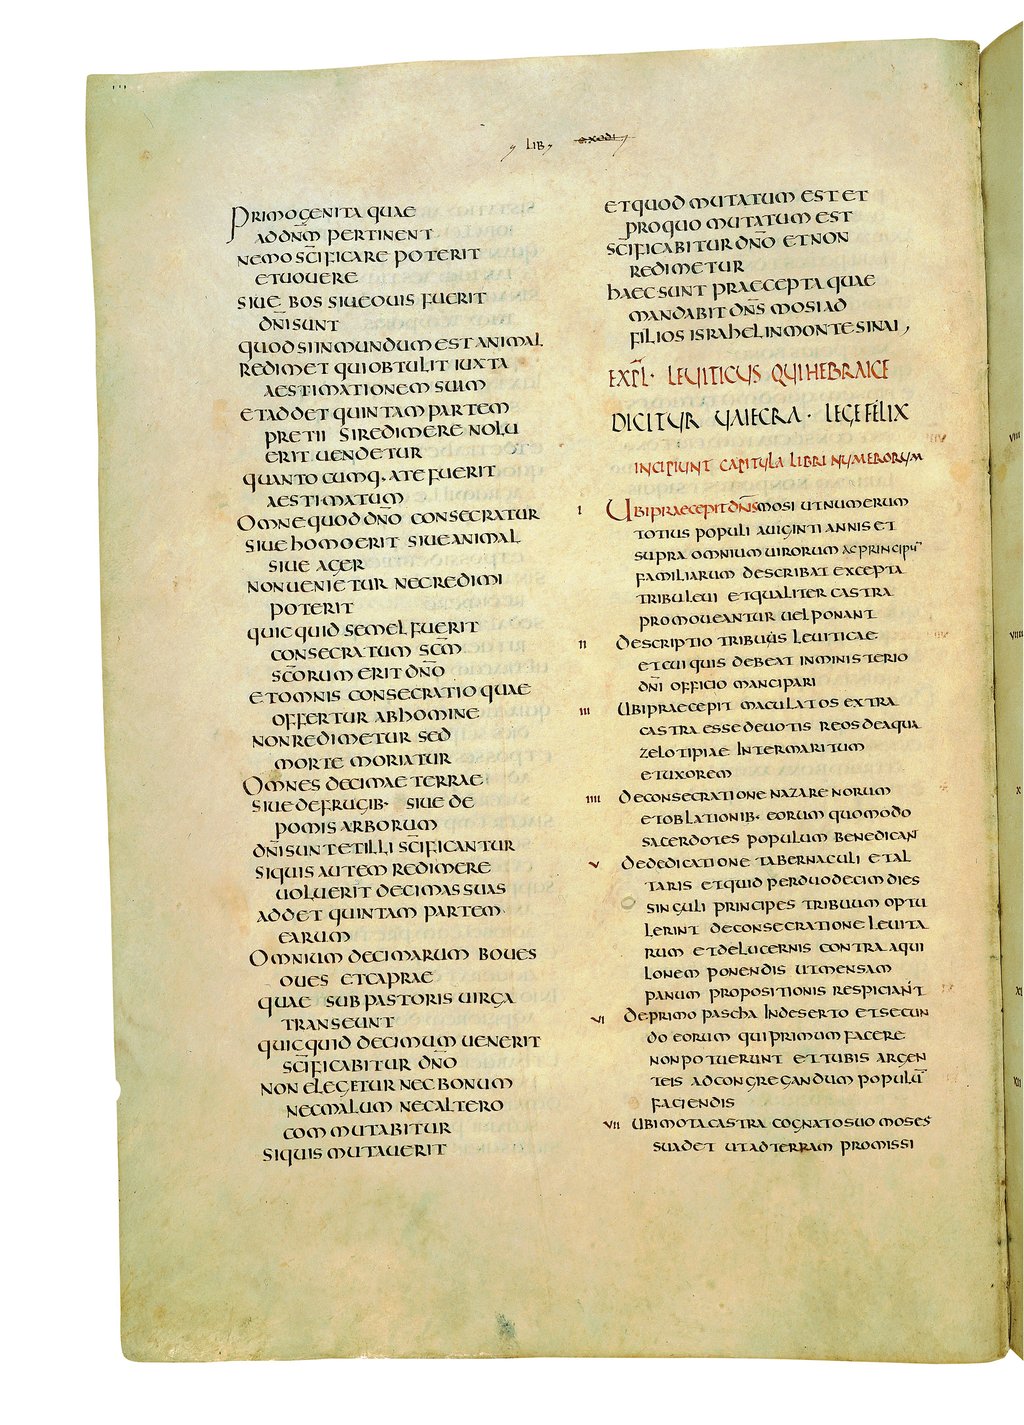 LIB EXODI
PRIMOGENITA QUAE
AD DN̄M PERTINENT
NEMO SC̄IFICARE POTERIT
ET UOUERE
SIUE BOS SIUE OUIS FUERIT
DN̄I SUNT
QUOD SI INMUNDUM EST ANIMAL
REDIMET QUI OBTULIT IUXTA
AESTIMATIONEM SUAM
ET ADDET QUINTAM PARTEM
PRETII SI REDIMERE NOLU
ERIT UENDETUR
QUANTO CUMQ· A TE FUERIT
AESTIMATUM
OMNE QUOD DN̄O CONSECRATUR
SIUE HOMO ERIT SIUE ANIMAL
SIUE AGER
NON UENIETUR NEC REDIMI
POTERIT
QUICQUID SEMEL FUERIT
CONSECRATUM SC̄M
SC̄ORUM ERIT DN̄O
ET OMNIS CONSECRATIO QUAE
OFFERTUR AB HOMINE
NON REDIMETUR SED
MORTE MORIATUR
OMNES DECIMAE TERRAE
SIUE DE FRUGIB· SIUE DE
POMIS ARBORUM
DN̄I SUNT ET ILLI SC̄IFICANTUR
SIQUIS AUTEM REDIMERE
UOLUERIT DECIMAS SUAS
ADDET QUINTAM PARTEM
EARUM
OMNIUM DECIMARUM BOUES
OUES ET CAPRAE
QUAE SUB PASTORIS UIRGA
TRANSEUNT
QUICQUID DECIMUM UENERIT
SC̄IFICABITUR DN̄O
NON ELEGETUR NEC BONUM
NEC MALUM NEC ALTERO
COMMUTABITUR
SIQUIS MUTAUERIT
ET QUOD MUTATUM EST ET
PRO QUO MUTATUM EST
SC̄IFICABITUR DN̄O ET NON
REDIMETUR
HAEC SUNT PRAECEPTA QUAE
MANDABIT DN̄S MOSI AD
FILIOS ISRAHEL IN MONTE SINAI
EXPL̄· LEUITICUS QUI HEBRAICE
DICITUR UAIECRA · LEGE FELIX
INCIPIUNT CAPITULA LIBRI NUMERORUM
I UBI PRAECEPIT DN̄S MOSI UT NUMERUM
TOTIUS POPULI A UIGINTI ANNIS ET
SUPRA OMNIUM UIRORUM AC PRINCIPU̅
FAMILIARUM DESCRIBAT EXCEPTA
TRIBU LEUI ET QUALITER CASTRA
PROMOUEANTUR UEL PONANT
II DESCRIPTIO TRIBUUS LEUITICAE
ET CUI QUIS DEBEAT IN MINISTERIO
DN̄I OFFICIO MANCIPARI
III UBI PRAECEPIT MACULATOS EXTRA
CASTRA ESSE DEUOTIS REOS DEAQUA
ZELOTIPIAE INTER MARITUM
ET UXOREM
IIII DE CONSECRATIONE NAZARENORUM
ET OBLATIONIB· EORUM QUOMODO
SACERDOTES POPULUM BENEDICANT
V DE DEDICATIONE TABERNACULI ET AL
TARIS ET QUID PER DUODECIM DIES
SINGULI PRINCIPES TRIBUUM OPTU
LERINT DE CONSECRATIONE LEUITA
RUM ET DE LUCERNIS CONTRA AQUI
LONEM PONENDIS UT MENSAM
PANUM PROPOSITIONIS RESPICIANT
VI DE PRIMO PASCHA IN DESERTO ET SECUN
DO EORUM QUI PRIMUM FACERE
NON POTUERUNT ET TUBIS ARGEN
TEIS AD CONGREGANDUM POPULU̅
FACIENDIS
VII UBI MOTA CASTRA COGNATO SUO MOSES
SUADET UT AD TERRAM PROMISSI
VIII
VIIII
X
XI
XII